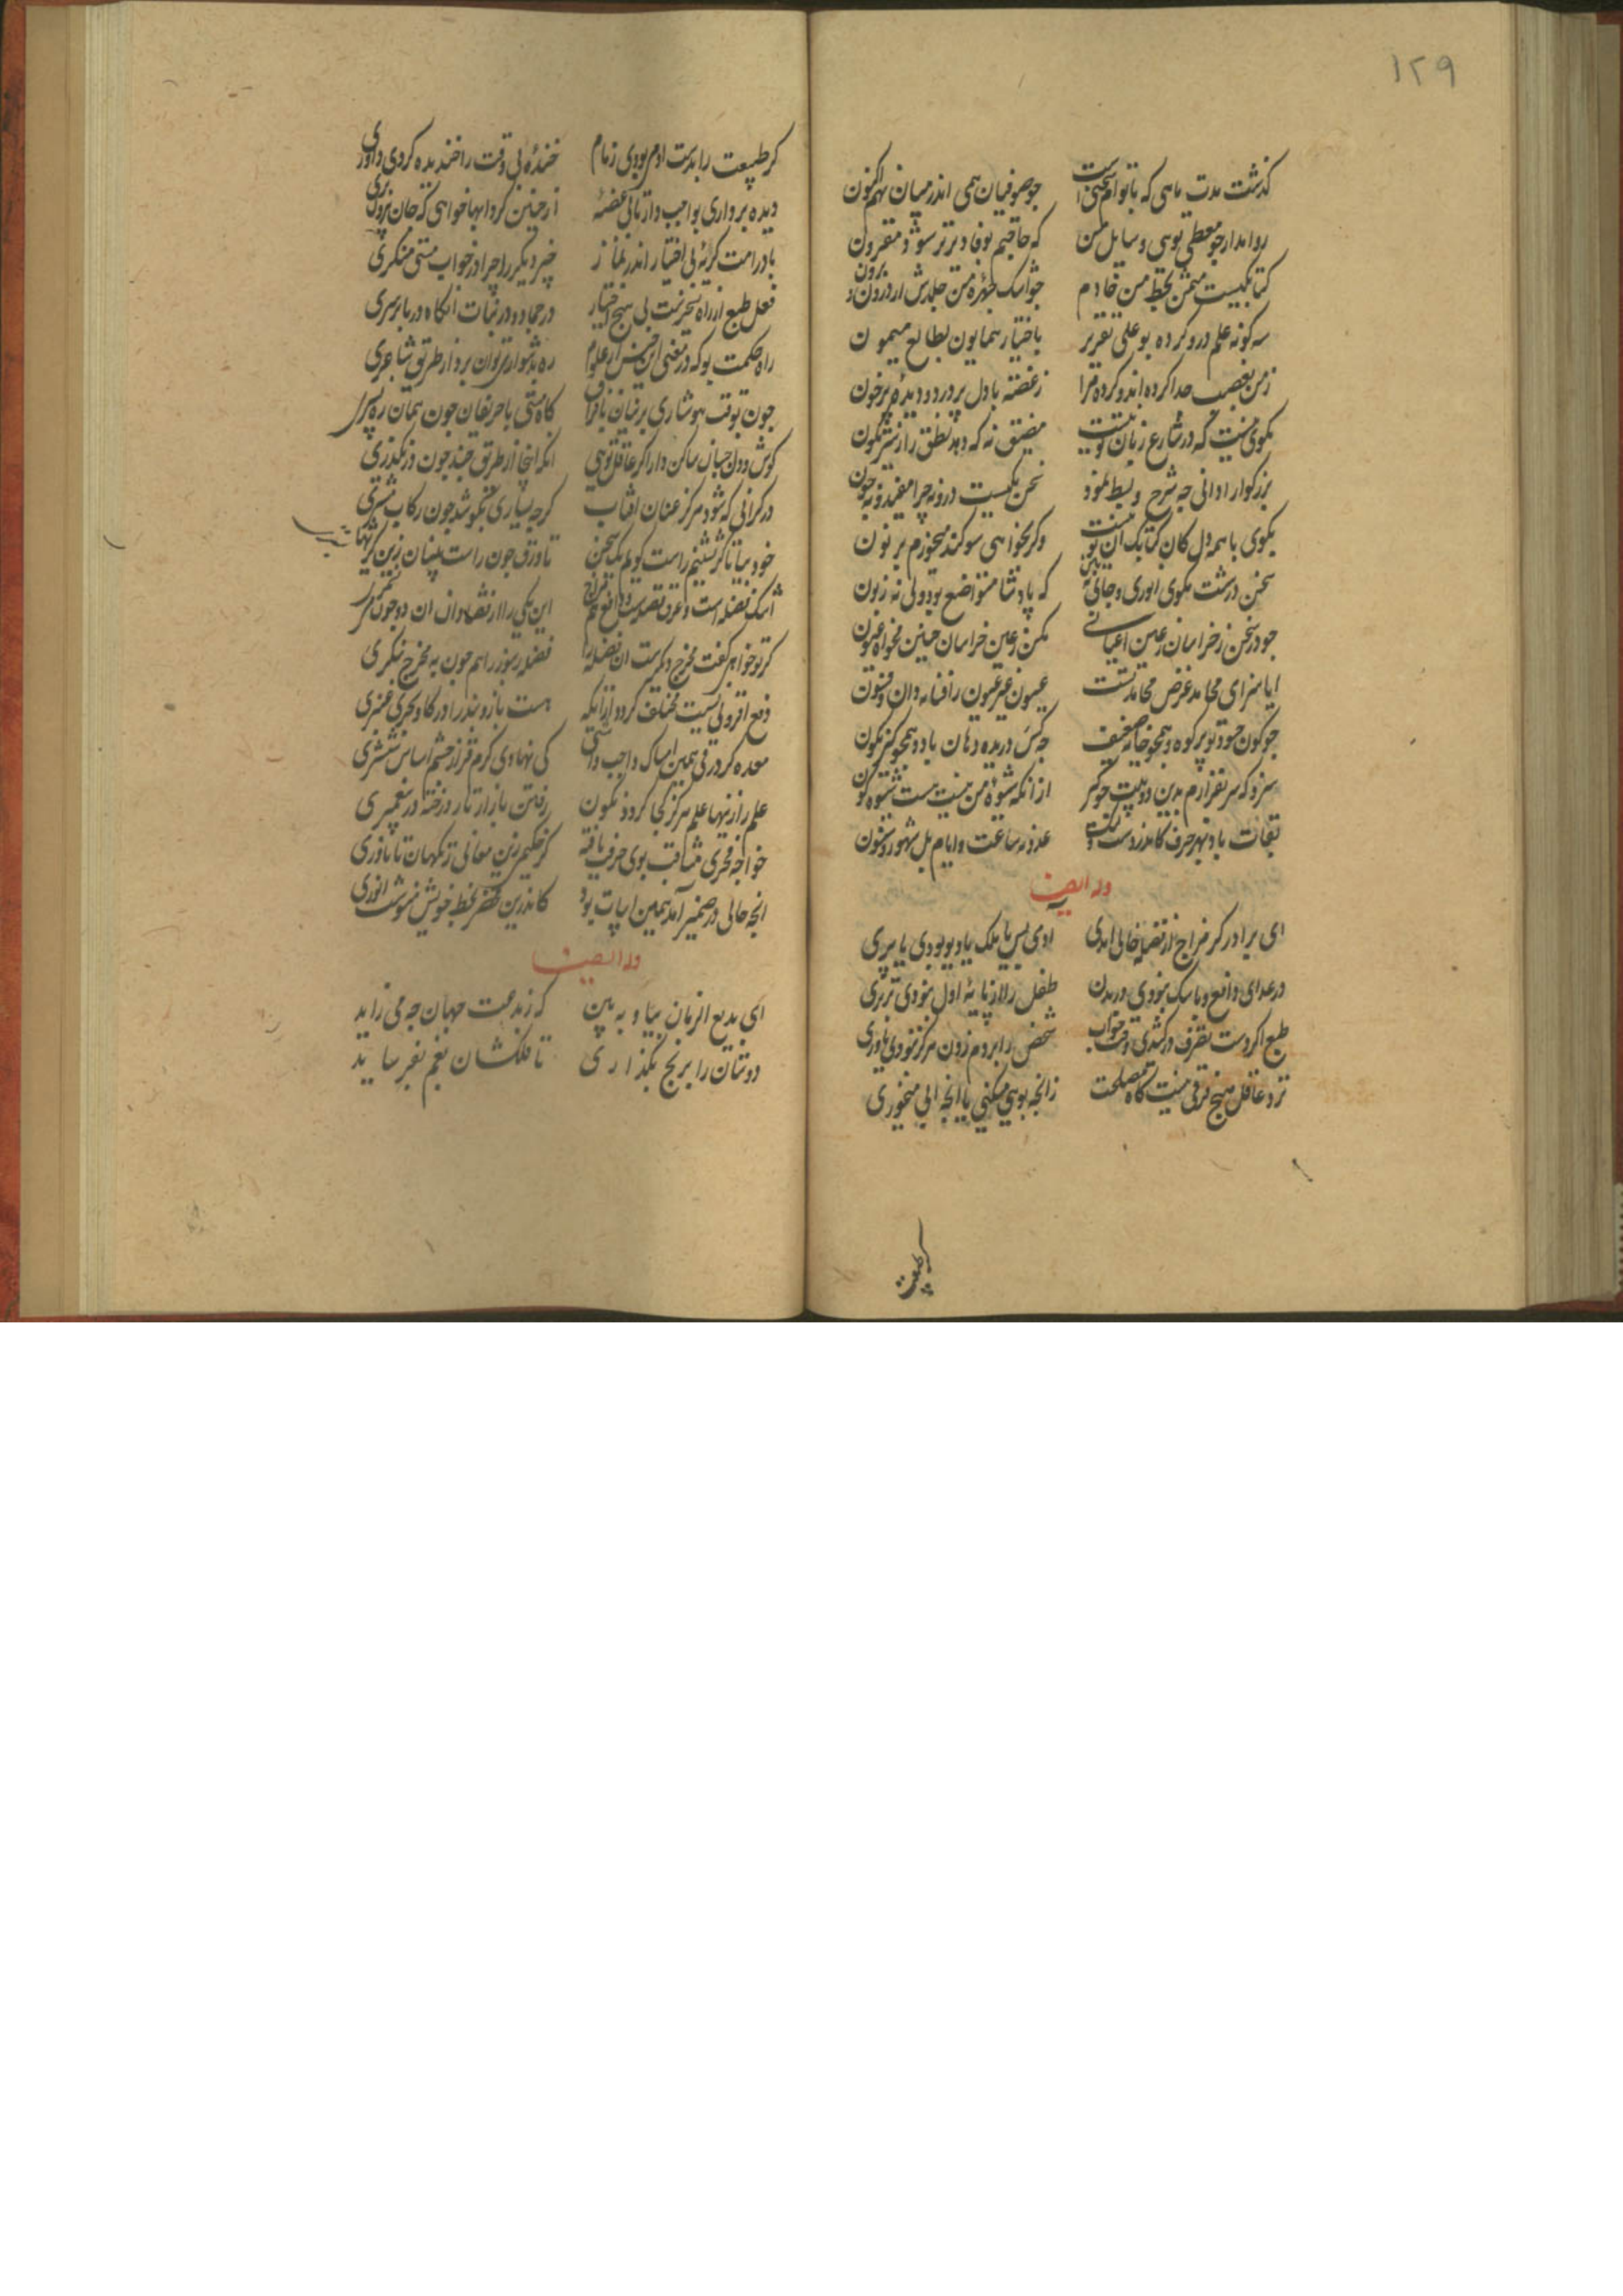 ۱۲۹
گذشت مدت ماهی که با توام سخن است
چو صوفیان همی اندر میان نهم اکنون
روا مدار چو معطی توی و سایل من
که حاجتم بوفا دیرتر شود مقرون
کتابکیست مثمن بخط من خادم
چو اشک و چهره من جلدش از درون و برون
سه کونه علم درو کرده بوعلی تقریر
باختیار همایون بطالع میمون
زمن بغصب جدا کرده اند و کرده مرا
زغصه با دل پر درد و دیده پر خون
نکوی نیست که در شارع زبان تو نیست
مضیق نه که دهد نطق را ز نشر نکون
بزرکوارا دانی چه شرح و بسط نمود
سخن یکیست درو نه چرا مقید و نه چون
بکوی با همه دل کان کتابک آن تو نیست
وکر نخواهی سوکند میخورم بر نون
سخن درشت مکوی انوری و جایی بین
که پادشا متواضع بود ولی نه زبون
چو در سخن ز خراسان ز عین اعیانی
مکن ز عین خراسان چنین مخواه عیون
ایا سزای محامد غرض محامد تست
عیون غیر عیون را فسانه دان و فسون
چو کون حسود تو پر کوه و همچو خایه ضعیف
چه کس دریده دهان باد و همچو کیر نکون
سزد که سر بفرازم بدین دو بیت چو کیر
از انکه شیوه من نیست هست شیوه کون
بقات باد بهر حرف کاندروست
عدد نه ساعت و ایام بل شهور و سنون
وله ایضا
ای برادر کر مزاج از فضله خالی آمدی
آدمی پس یا ملک یا دیو بودی یا پری
در غذای دافع و ماسک نبودی در بدن
طفل را از پایه اول نبودی برتری
طبع اکر دست تصرف درکشیدی وقت خواب
شخص را بر دم زدن هرکز نبودی یاوری
نزد عاقل هیچ فرقی نیست کاه مصلحت
زانچه بویی میکنی یا انچه آبی میخوری
کر طبیعت
کر طبیعت را بدست آدم بودی زمام
خنده بی وقت را خنده کردی داوری
دیده برداری بواجب وارتابی غصه
از چنین کردابها خواهی که جان بیرون بری
باد را مت کریه بی اختیار اندر نماز
خیز دیکر را چرا در خواب مستی منکری
فعل طبع از راه تسخیرست بی هیچ اختیار
در جماد و در نبات انکاه در با برسری
راه حکمت بو که در معنی این جنس از علوم
ره بدشواری توان برد از طریق شاعری
چون بوقت هوشیاری بر زیان نافران
کاه مستی با حریفان چون همان ره بسپری
کوش و دل جنبان ساکن دار اکر عاقل توی
انکه اینجا از طریق خبث چون در نکذری
در کرانی که شود هرکز عنان آفتاب
کرچه بسیاری بکوشد چون رکاب مشتری
خود بیا تا کژ نشینم راست کویم یک سخن
تا ورق چون راست بینان زین کژیها بستری
اشک فضله است و عرق فضله است و دافع هم مزاج
این یکی را از قضا دان آن دو چون می نشمری
کر تو خواهی کفت مخرج دیکرست آن فضله را
فضله زنبور را هم چون به مخرج ننکری
دفع افزونی نسبت مختلف کردد از آنکه
هست بازو بند را در کاو بحری عنبری
معده کر در قی همین امساک واجب داشتی
کی نهادی کرم قز از چشم اساس ششتری
علم را زینها علم هرکز کجا کردد نکون
رفتن بازار تار و رخنه در پیغمبری
خواجه فخری مثاقب بوی حرف یافته
کر حکیم زین معانی نزمکهان تا باوری
انچه حالی در ضمیر آمد همین ابیات بود
کاندرین محضر بخط خویش بنوشت انوری
وله ایضا
ای بدیع الزمان بیا و به بین
که ز بدعت جهان چه می زاید
دوستان را برنج بکذاری
تا فلکشان بغم بفرساید